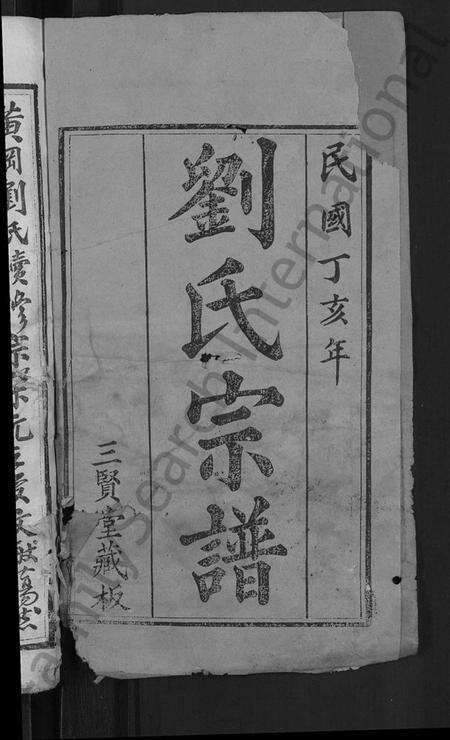 民國丁亥年
劉氏宗譜
三賢堂藏板
黃岡劉氏續修宗
FamilySearch International